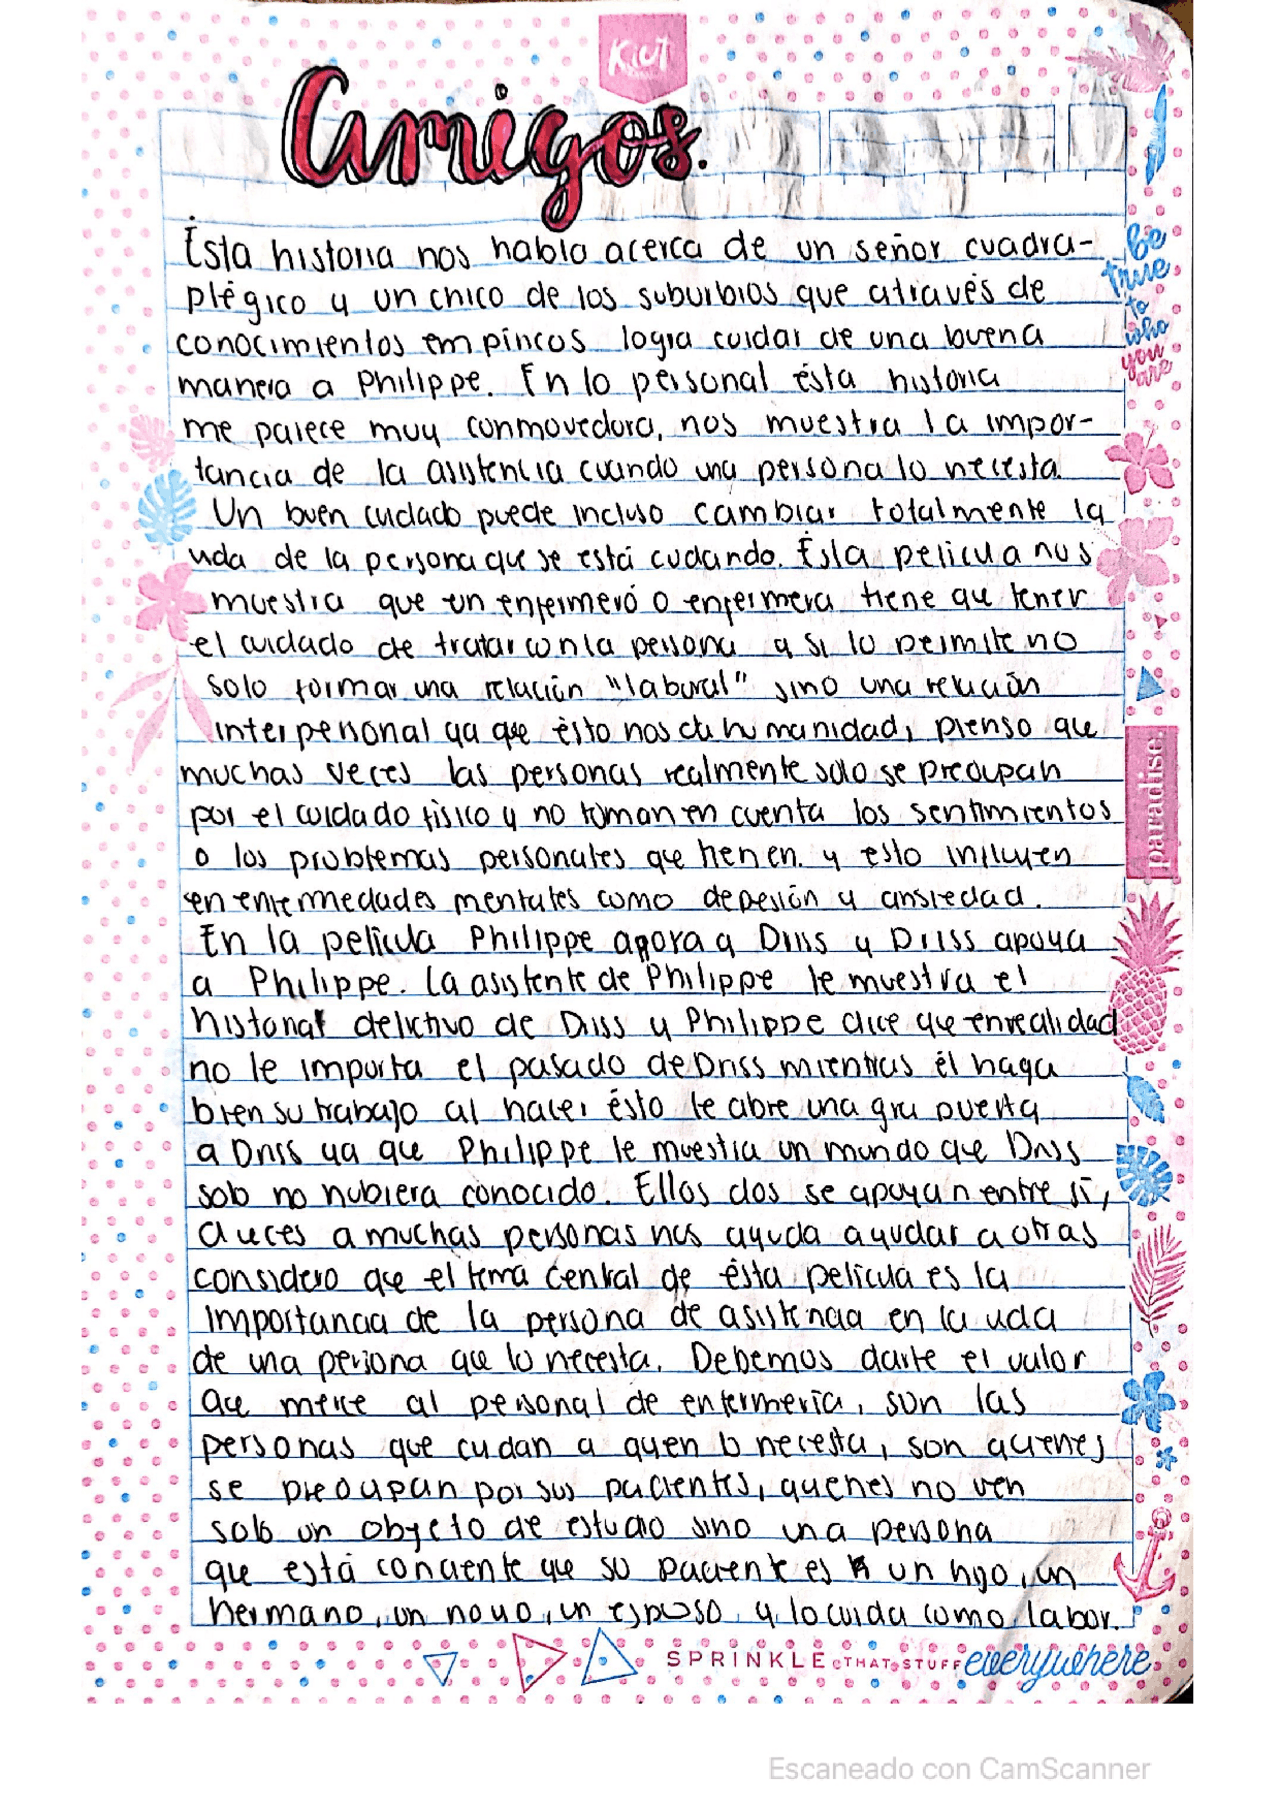 Kiut
Amigos.
Ésta historia nos habla acerca de un señor cuadra-
plégico y un chico de los suburbios que através de
conocimientos empíricos logra cuidar de una buena
manera a Philippe. En lo personal ésta historia
me parece muy conmovedora, nos muestra la impor-
tancia de la asistencia cuando una persona lo necesita.
Un buen cuidado puede incluso cambiar totalmente la
vida de la persona que se está cuidando. Ésta pelicula nos
muestra que un enfermeró o enfermera tiene que tener
el cuidado de tratar con la persona y si lo permite no
solo formar una relación "laboral" sino una relación
interpersonal ya que ésto nos da humanidad, pienso que
muchas veces las personas realmente solo se preocupan
por el cuidado físico y no toman en cuenta los sentimientos
o los problemas personales que tienen. y esto influyen
en enfermedades mentales como depesión y ansiedad.
En la película Philippe apoya a Driss y Driss apoya
a Philippe. La asistente de Philippe le muestra el
historial delictivo de Driss y Philippe dice que enrealidad
no le importa el pasado de Driss mientras él haga
bien su trabajo al hacer ésto le abre una gra puerta
a Driss ya que Philippe le muestra un mundo que Driss
solo no hubiera conocido. Ellos dos se apoyan entre sí,
aveces a muchas personas nos ayuda ayudar a otras
considero que el tema central de ésta película es la
importancia de la persona de asistencia en la vida
de una persona que lo necesita. Debemos darle el valor
que merece al personal de enfermería, son las
personas que cuidan a quien lo necesita, son quienes
se preocupan por sus pacientes, quienes no ven
solo un objeto de estudio sino una persona
que está conciente que su paciente es un hijo, un
hermano, un novio, un esposo y lo cuida como labor.
be
true
to
who
you
are
paradise.
SPRINKLE THAT STUFF everywhere
Escaneado con CamScanner